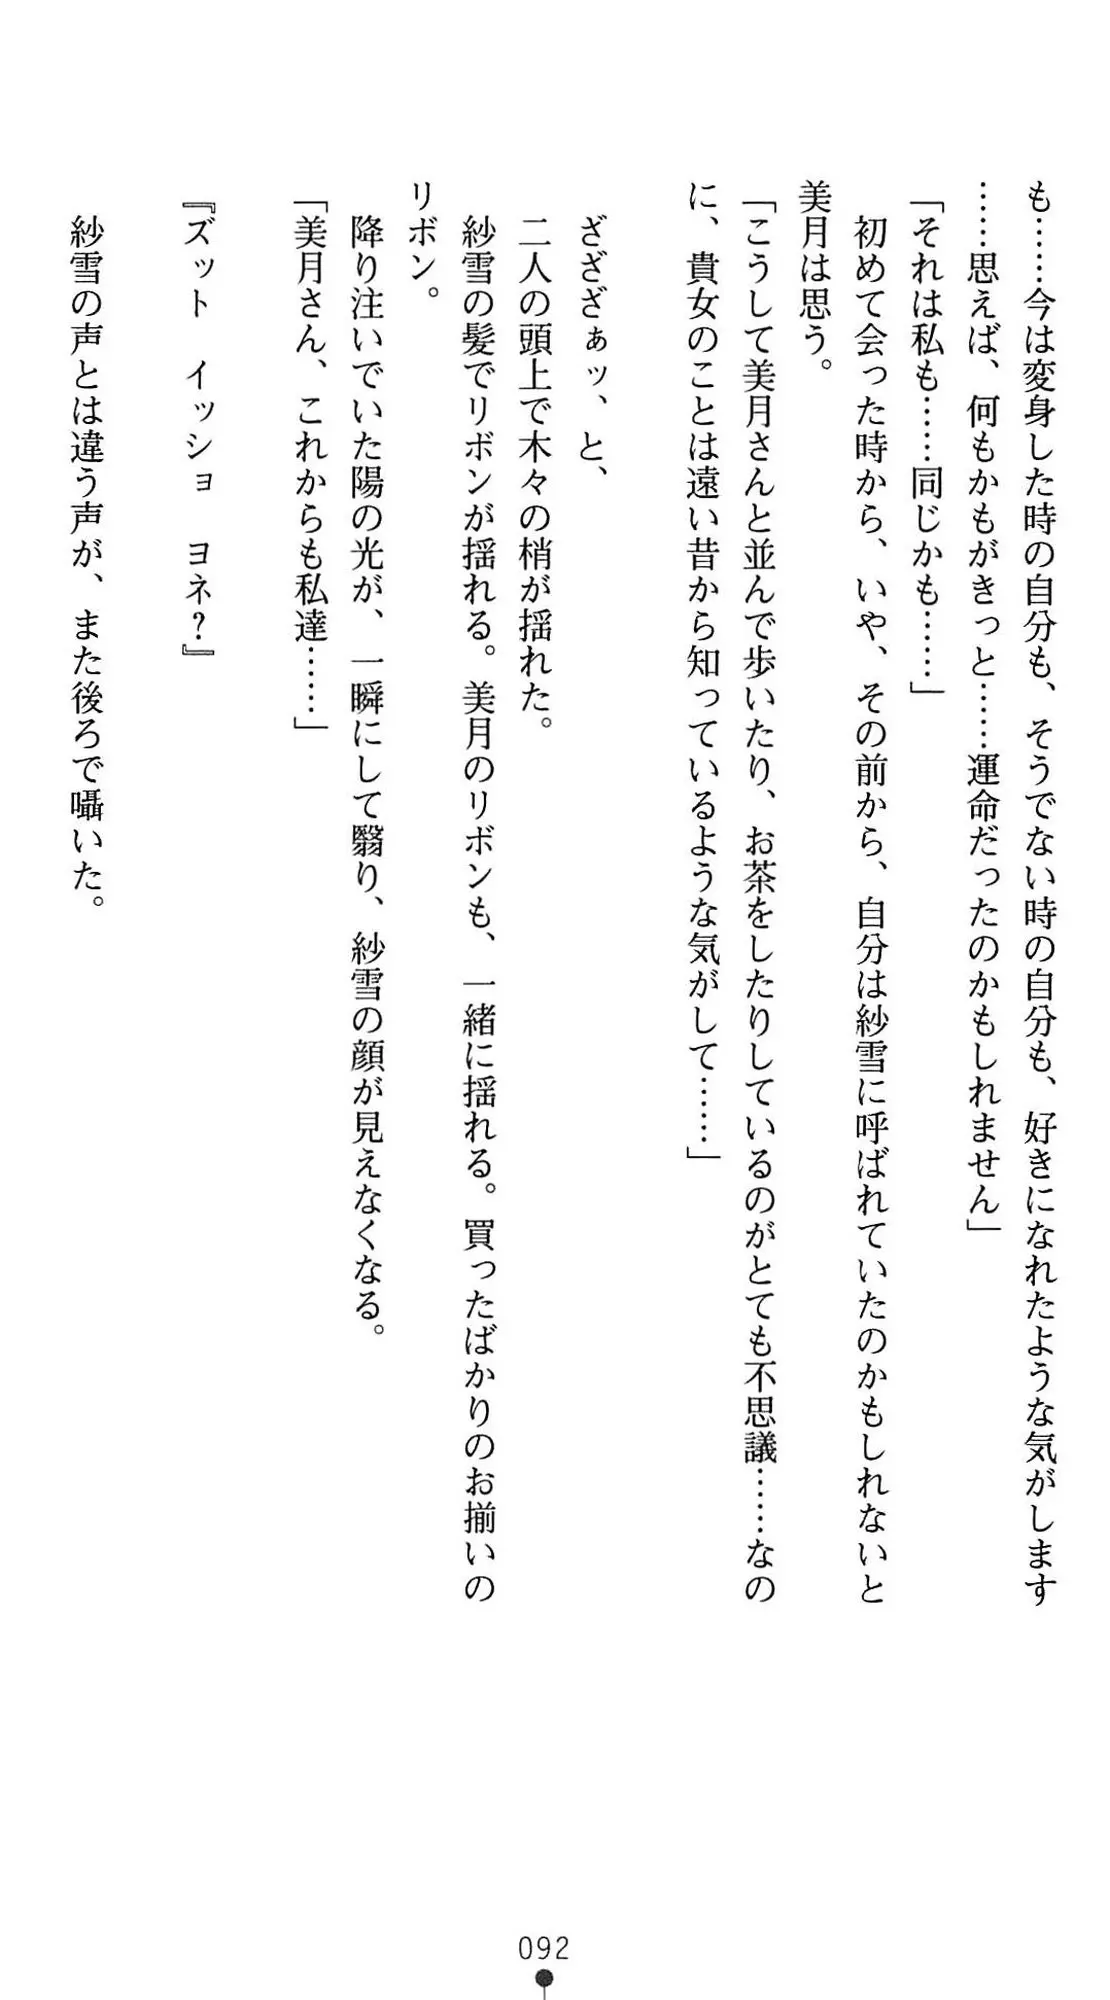 も……今は変身した時の自分も、そうでない時の自分も、好きになれたような気がします
……思えば、何もかもがきっと……運命だったのかもしれません」
「それは私も……同じかも……」
　初めて会った時から、いや、その前から、自分は紗雪に呼ばれていたのかもしれないと
美月は思う。
「こうして美月さんと並んで歩いたり、お茶をしたりしているのがとても不思議……なの
に、貴女のことは遠い昔から知っているような気がして……」
　ざざざぁッ、と、
　二人の頭上で木々の梢が揺れた。
　紗雪の髪でリボンが揺れる。美月のリボンも、一緒に揺れる。買ったばかりのお揃いの
リボン。
　降り注いでいた陽の光が、一瞬にして翳り、紗雪の顔が見えなくなる。
「美月さん、これからも私達……」
『ズット　イッショ　ヨネ？』
　紗雪の声とは違う声が、また後ろで囁いた。
092